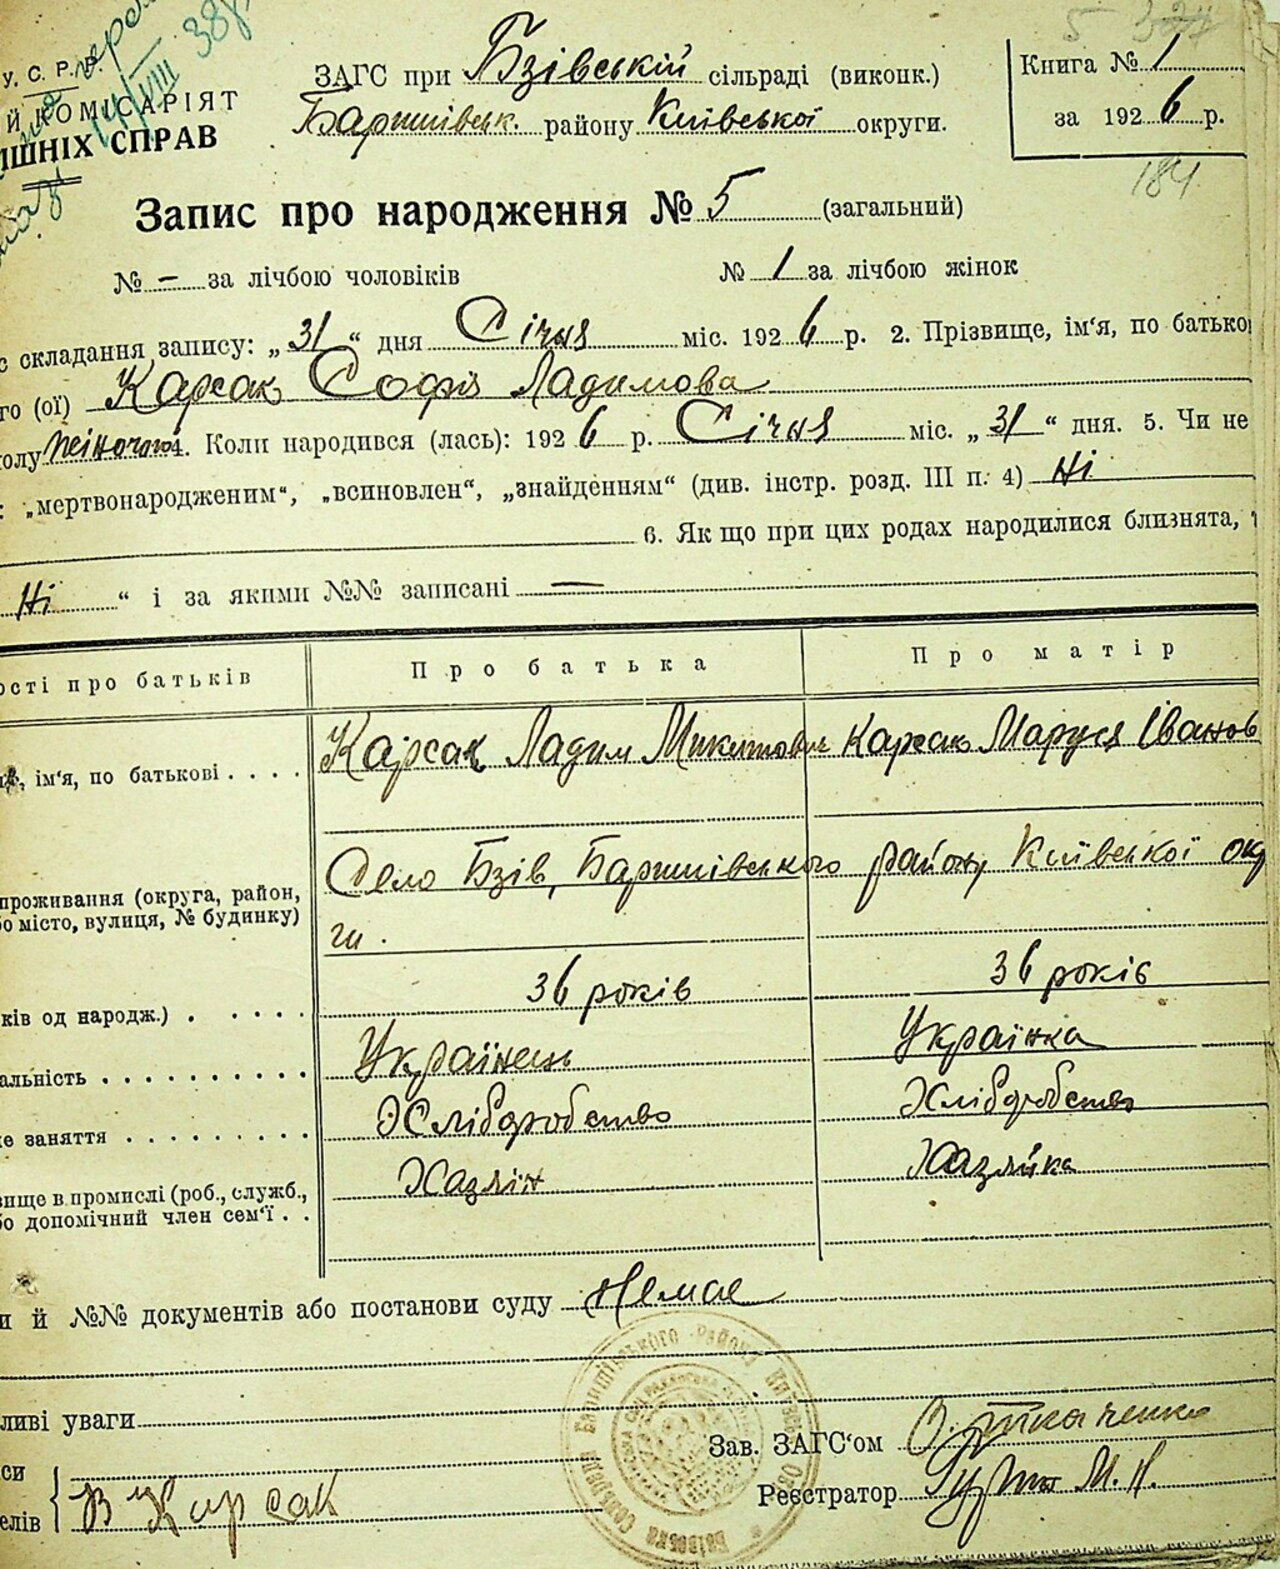 У. С. Р. Р.
Й КОМІСАРІЯТ
ІШНІХ СПРАВ
14/VIII 38
ЗАГС при Бзівській сільраді (виконк.)
Баришівськ. району Київської округи.
Книга № 1
за 1926 р.
184
Запис про народження № 5 (загальний)
№ — за лічбою чоловіків № 1 за лічбою жінок
с складання запису: „31“ дня Січня міс. 1926 р. 2. Прізвище, ім‘я, по батько
го (ої) Карсак Софія Ладимова
олу жіночого 4. Коли народився (лась): 1926 р. Січня міс. „31“ дня. 5. Чи не
: „мертвонародженим“, „всиновлен“, „знайденням“ (див. інстр. розд. III п. 4) Ні
6. Як що при цих родах народилися близнята,
Ні “ і за якими №№ записані —
ості про батьків Про батька Про матір
ім‘я, по батькові . . . . Карсак Ладим Микитович Карсак Маруся Іванов
проживання (округа, район, Село Бзів, Баришівського району Київської окр
бо місто, вулиця, № будинку) ги.
ків од народж.) . . . . . 36 років 36 років
альність . . . . . . . . . . Українець Українка
е заняття . . . . . . . . . Хліборобство Хліборобство
вище в промислі (роб., служб., Хазяїн Хазяйка
бо допомічний член сем‘ї . .
и й №№ документів або постанови суду Немає
ливі уваги
Зав. ЗАГС‘ом О. Ткаченко
си
елів В Карсак
Реєстратор М. Н.